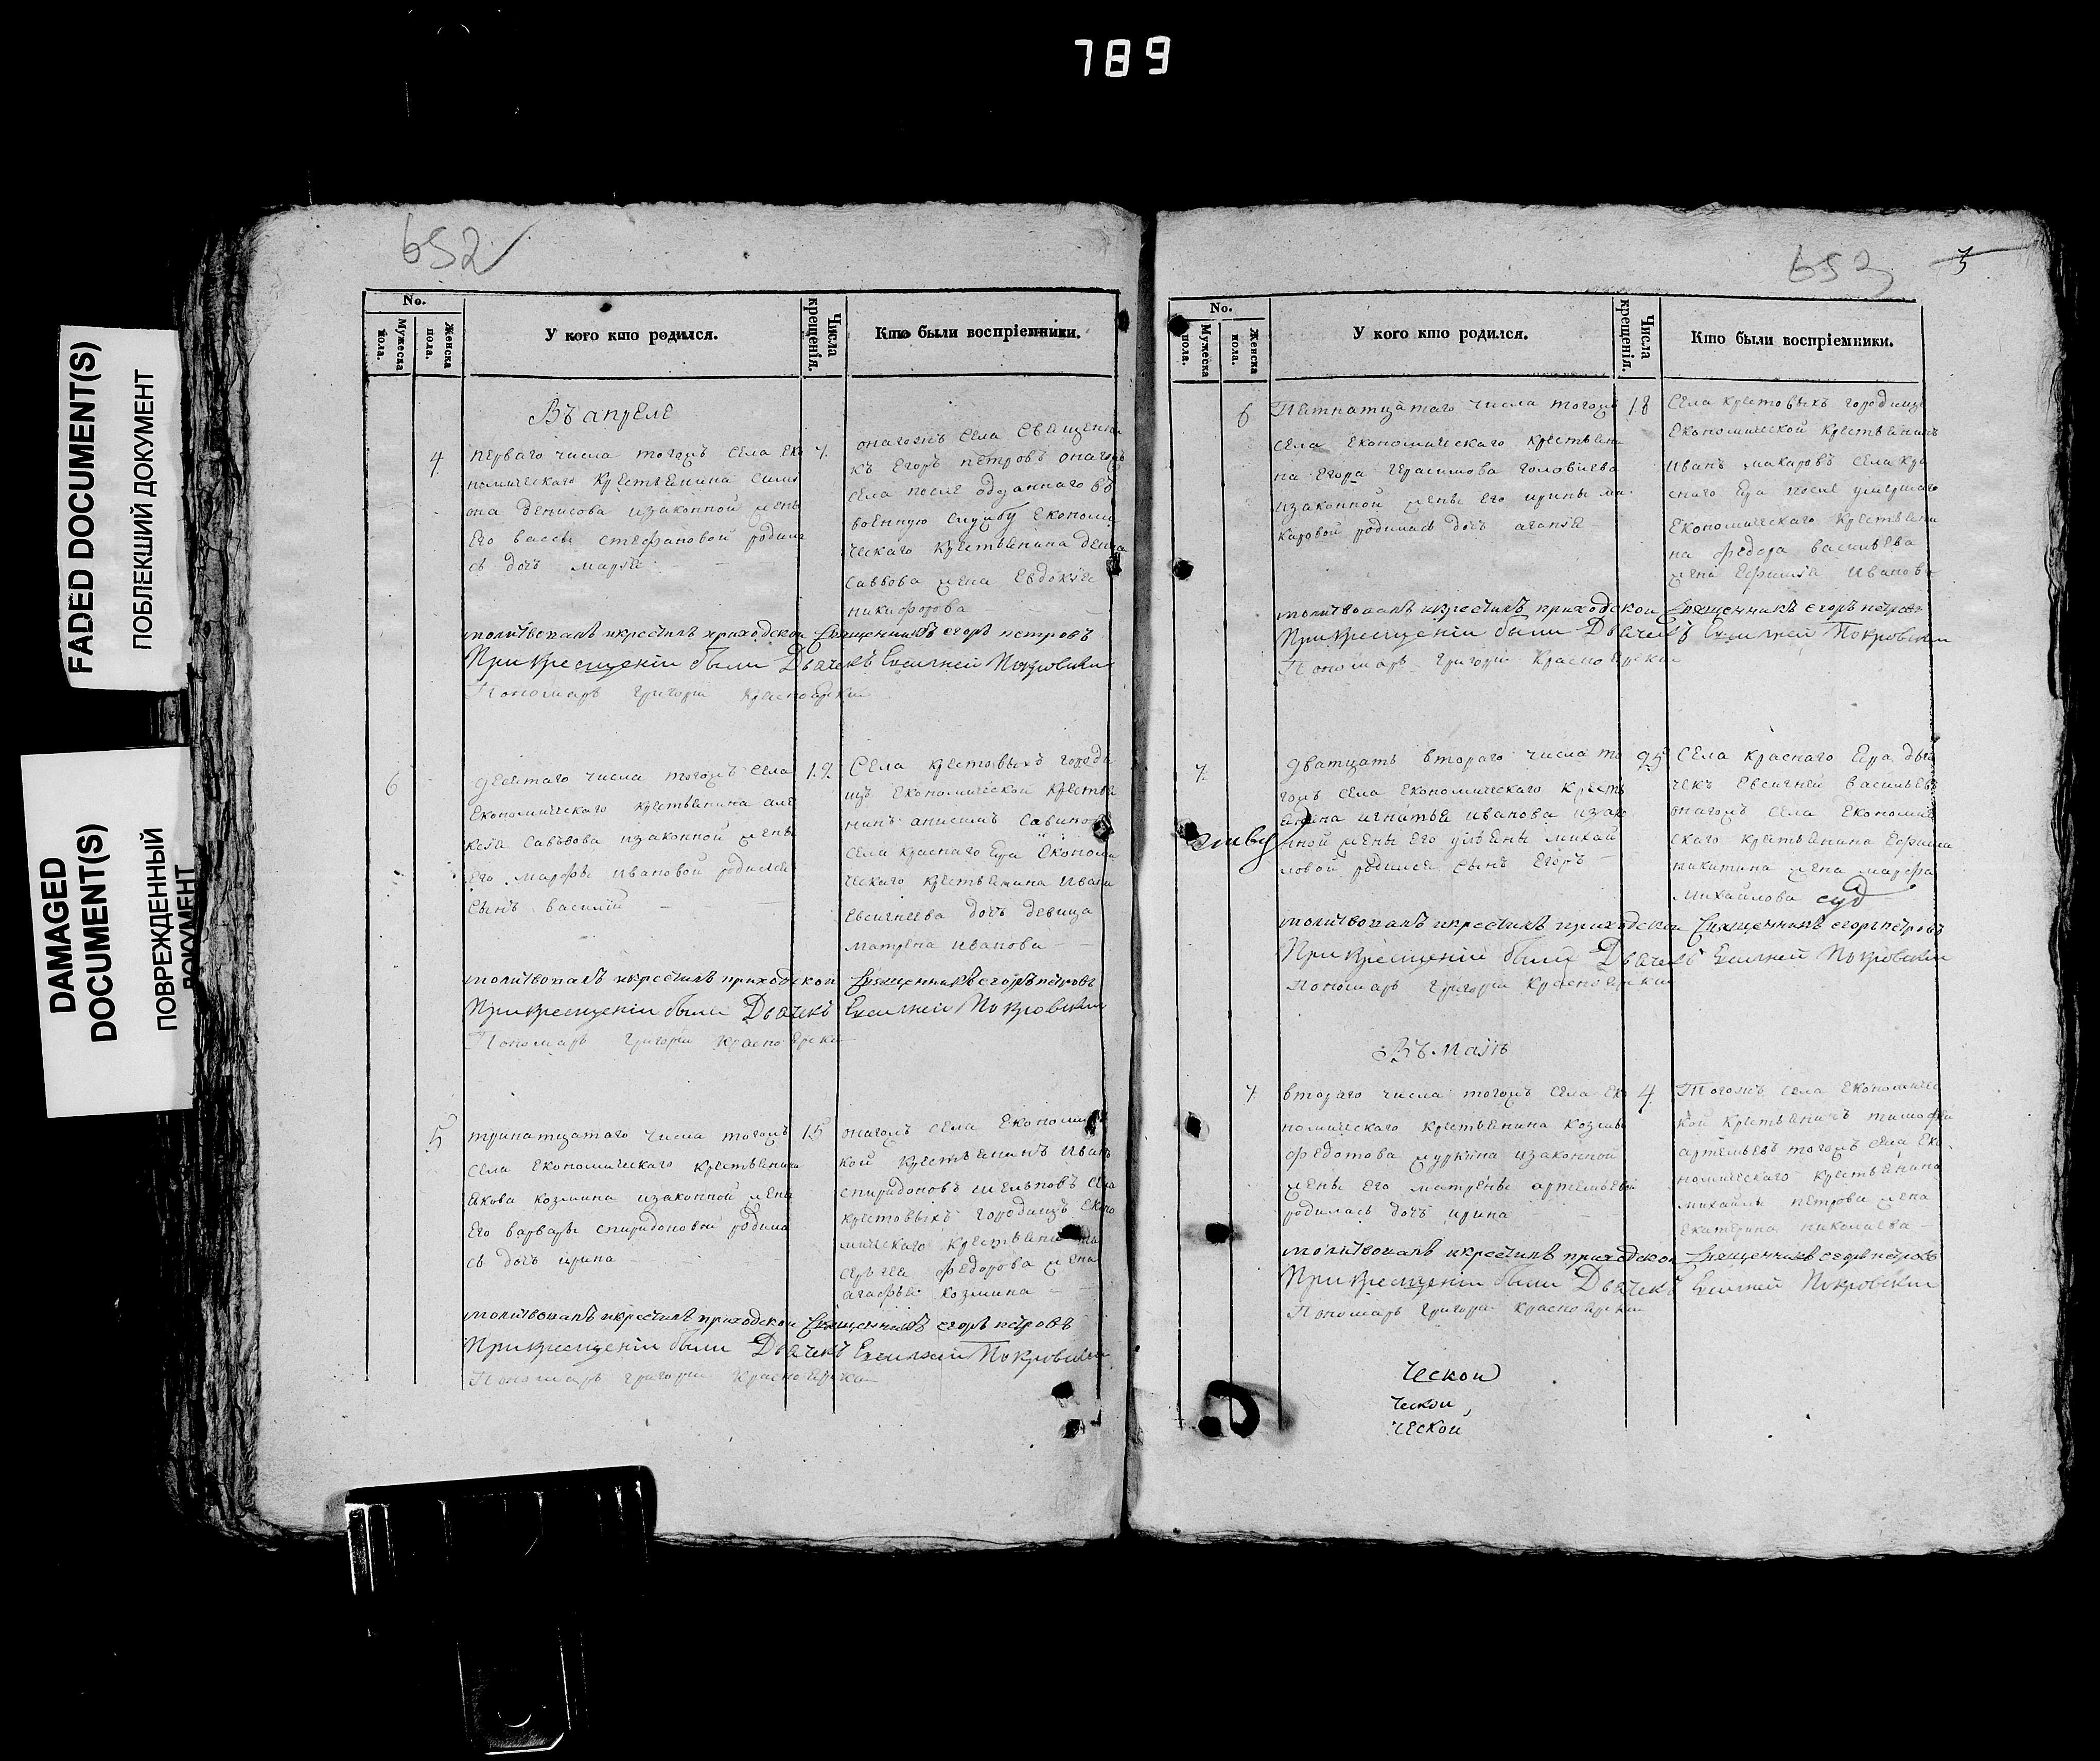 789
FADED DOCUMENT(S)
ПОБЛЕКШИЙ ДОКУМЕНТ
DAMAGED
DOCUMENT(S)
ПОВРЕЖДЕННЫЙ
ДОКУМЕНТ
652
No.
Мужеска пола.
Женска пола.
У кого кто родился.
Числа крещенія.
Кто были воспріемники.
Въ апреле
4
перваго числа тогожъ села еко
номическаго крестьянина симі
она денисова изаконной жены
его вассы стефановой родила
сь дочь марія
7.
онагожъ села священни
къ егоръ петровъ онагожъ
села после отданнаго въ
военную службу економи
ческаго крестьянина дениса
саввова жена евдокія
никифорова
молитвовалъ икрестилъ приходской священникъ егоръ петровъ
При крещеніи были Дьячекъ Евсигней Покровскій
Пономарь григорій красноярскій
6
десятаго числа тогожъ села
економическаго крестьянина але
ксѣя савъвова изаконной жены
его марфы ивановой родился
сынъ василій
12.
села крестовыхъ городи
щъ економической крестья
нинъ анисимъ савиновъ
села краснаго яра економи
ческаго крестьянина ивана
евсигнеева дочь девица
матрена иванова
молитвовалъ икрестилъ приходской священникъ егоръ петровъ
При крещеніи были Дьячекъ Евсигней Покровскій
Пономарь григорій красноярскій
5
тринатцатаго числа тогожъ
села економическаго крестьянина
якова козмина изаконной жены
его варвары спиридоновой родила
сь дочь ирина
15
онагожъ села економичес
кой крестьянинъ иванъ
спиридоновъ села
крестовыхъ городищъ еконо
мическаго крестьянина
сергея федорова жена
агафья козмина
молитвовалъ икрестилъ приходской священникъ егоръ петровъ
При крещеніи были Дьячекъ Евсигней Покровскій
Пономарь григорій красноярскій
653
3
No.
Мужеска пола.
Женска пола.
У кого кто родился.
Числа крещенія.
Кто были воспріемники.
6
Пятнатцатаго числа тогожъ
села економическаго крестьяни
на егора герасимова головчева
изаконной жены его ирины ма
каровой родилась дочь агапія
18
села крестовыхъ городищъ
економической крестьянинъ
иванъ макаровъ села кра
снаго яра после умершаго
економическаго крестьяни
на федора васильева
жена ефимія иванова
молитвовалъ икрестилъ приходской священникъ егоръ петровъ
При крещеніи были Дьячекъ Евсигней Покровскій
Пономарь григорій красноярскій
7.
дватцать втораго числа то
гожъ села економическаго кресть
янина игнатья иванова изако
нной жены его ульяны михай
ловой родился сынъ егоръ
25
села краснаго яра дья
чекъ евсигней васильевъ
онагожъ села економиче
скаго крестьянина ефима
никитина жена марфа
михайлова суд
молитвовалъ икрестилъ приходской священникъ егоръ петровъ
При крещеніи были Дьячекъ Евсигней Покровскій
Пономарь григорій красноярскій
Въ Маіѣ
7.
втораго числа тогожъ села еко
номическаго крестьянина козмы
федотова муркина изаконной
жены его матрены артемьевой
родилась дочь ирина
4
Тогожъ села економичес
кой крестьянинъ тимофей
артемьевъ тогожъ села еко
номическаго крестьянина
михайлы петрова жена
екатерина николаева
молитвовалъ икрестилъ приходской священникъ егоръ петровъ
При крещеніи были Дьячекъ Евсигней Покровскій
Пономарь григорій красноярскій
ческой
ческой,
ческой